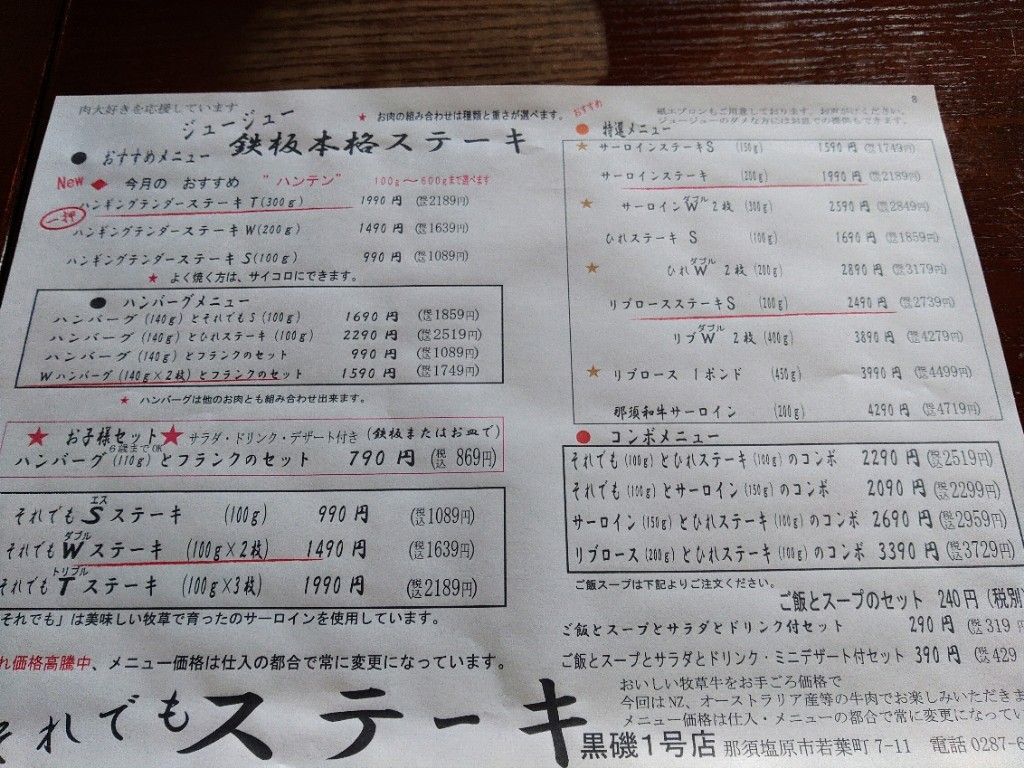 肉大好きを応援しています
ジュージュー
鉄板本格ステーキ
★ お肉の組み合わせは種類と重さが選べます。
● おすすめメニュー
New ◆ 今月の おすすめ "ハンテン" 100g～600gまで選べます
一押
ハンギングテンダーステーキT(300g) 1990円 (税込2189円)
ハンギングテンダーステーキW(200g) 1490円 (税込1639円)
ハンギングテンダーステーキS(100g) 990円 (税込1089円)
★ よく焼く方は、サイコロにできます。
● ハンバーグメニュー
ハンバーグ(140g)とそれでもS(100g) 1690円 (税込1859円)
ハンバーグ(140g)とひれステーキ(100g) 2290円 (税込2519円)
ハンバーグ(140g)とフランクのセット 990円 (税込1089円)
Wハンバーグ(140g×2枚)とフランクのセット 1590円 (税込1749円)
★ ハンバーグは他のお肉とも組み合わせ出来ます。
★ お子様セット★ サラダ・ドリンク・デザート付き(鉄板またはお皿で)
6歳までOK
ハンバーグ(110g)とフランクのセット 790円 (税込 869円)
エス
それでもSステーキ (100g) 990円 (税込1089円)
ダブル
それでもWステーキ (100g×2枚) 1490円 (税込1639円)
トリプル
それでもTステーキ (100g×3枚) 1990円 (税込2189円)
それでも」は美味しい牧草で育ったのサーロインを使用しています。
れ価格高騰中、メニュー価格は仕入の都合で常に変更になっています。
それでもステーキ
8
紙エプロンもご用意しております。お声がけください。
ジュージューのダメな方にはお皿での提供もできます。
おすすめ
● 特選メニュー
★ サーロインステーキS (150g) 1590円 (税込1749円)
サーロインステーキ (200g) 1990円 (税込2189円)
ダブル
★ サーロインW 2枚 (300g) 2590円 (税込2849円)
ひれステーキ S (100g) 1690円 (税込1859円)
ダブル
★ ひれW 2枚 (200g) 2890円 (税込3179円)
リブロースステーキS (200g) 2490円 (税込2739円)
ダブル
リブW 2枚 (400g) 3890円 (税込4279円)
★ リブロース 1ポンド (450g) 3990円 (税込4499円)
那須和牛サーロイン (200g) 4290円 (税込4719円)
● コンボメニュー
それでも(100g)とひれステーキ(100g)のコンボ 2290円 (税込2519円)
それでも(100g)とサーロイン(150g)のコンボ 2090円 (税込2299円)
サーロイン(150g)とひれステーキ(100g)のコンボ 2690円 (税込2959円)
リブロース(200g)とひれステーキ(100g)のコンボ 3390円 (税込3729円)
ご飯スープは下記よりご注文ください。
ご飯とスープのセット 240円(税別
ご飯とスープとサラダとドリンク付セット 290円 (税込319円
ご飯とスープとサラダとドリンク・ミニデザート付セット 390円 (税込429
おいしい牧草牛をお手ごろ価格で
今回はNZ、オーストラリア産等の牛肉でお楽しみいただきま
メニュー価格は仕入・メニューの都合で常に変更になってい
黒磯1号店 那須塩原市若葉町7-11 電話0287-6